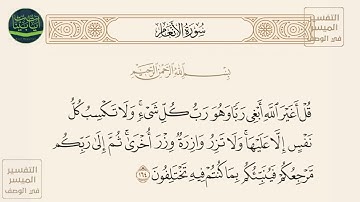 سُورَةُ الأَنْعَامِ
التفسير
الميسر
في الوصف
بِسْمِ اللَّهِ الرَّحْمَٰنِ الرَّحِيمِ
قُلْ أَغَيْرَ اللَّهِ أَبْغِي رَبًّا وَهُوَ رَبُّ كُلِّ شَيْءٍ ۚ وَلَا تَكْسِبُ كُلُّ
نَفْسٍ إِلَّا عَلَيْهَا ۚ وَلَا تَزِرُ وَازِرَةٌ وِزْرَ أُخْرَىٰ ۚ ثُمَّ إِلَىٰ رَبِّكُم
مَّرْجِعُكُمْ فَيُنَبِّئُكُم بِمَا كُنتُمْ فِيهِ تَخْتَلِفُونَ ١٦٤
التفسير
الميسر
في الوصف